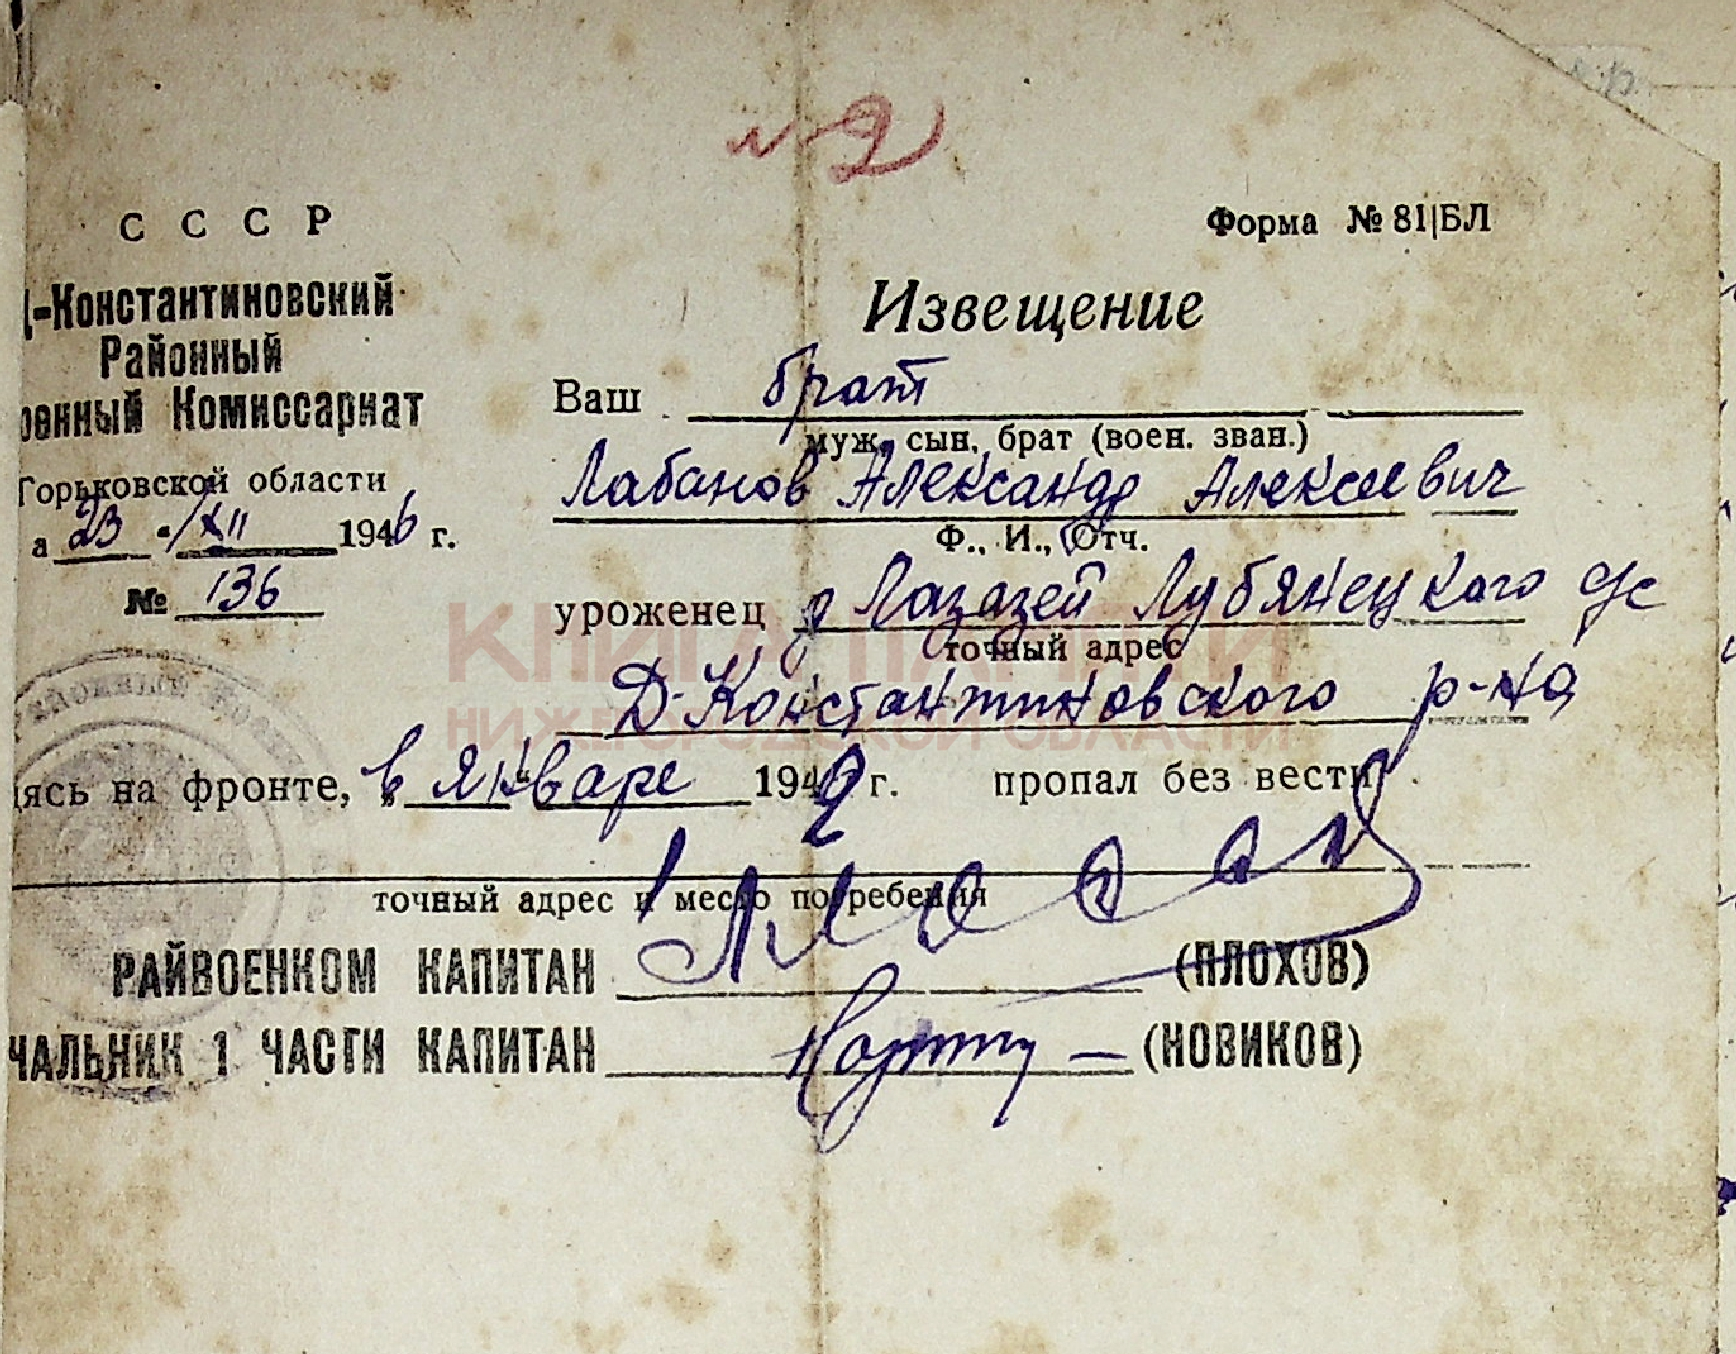 № 2
СССР
Форма № 81|БЛ
Д-Константиновский
Районный
Военный Комиссариат
Горьковской области
а 23 " XII 1946 г.
№ 136
Извещение
Ваш брат
муж, сын, брат (воен. зван.)
Лабанов Александр Алексеевич
Ф., И., Отч.
уроженец д Лазазей Лубянецкого с/с
точный адрес
Д-Константиновского р-на
дясь на фронте, „в январе 1942 г. пропал без вести
точный адрес и место погребения
РАЙВОЕНКОМ КАПИТАН (ПЛОХОВ)
ЧАЛЬНИК 1 ЧАСТИ КАПИТАН (НОВИКОВ)
КНИГА ПАМЯТИ
НИЖЕГОРОДСКОЙ ОБЛАСТИ